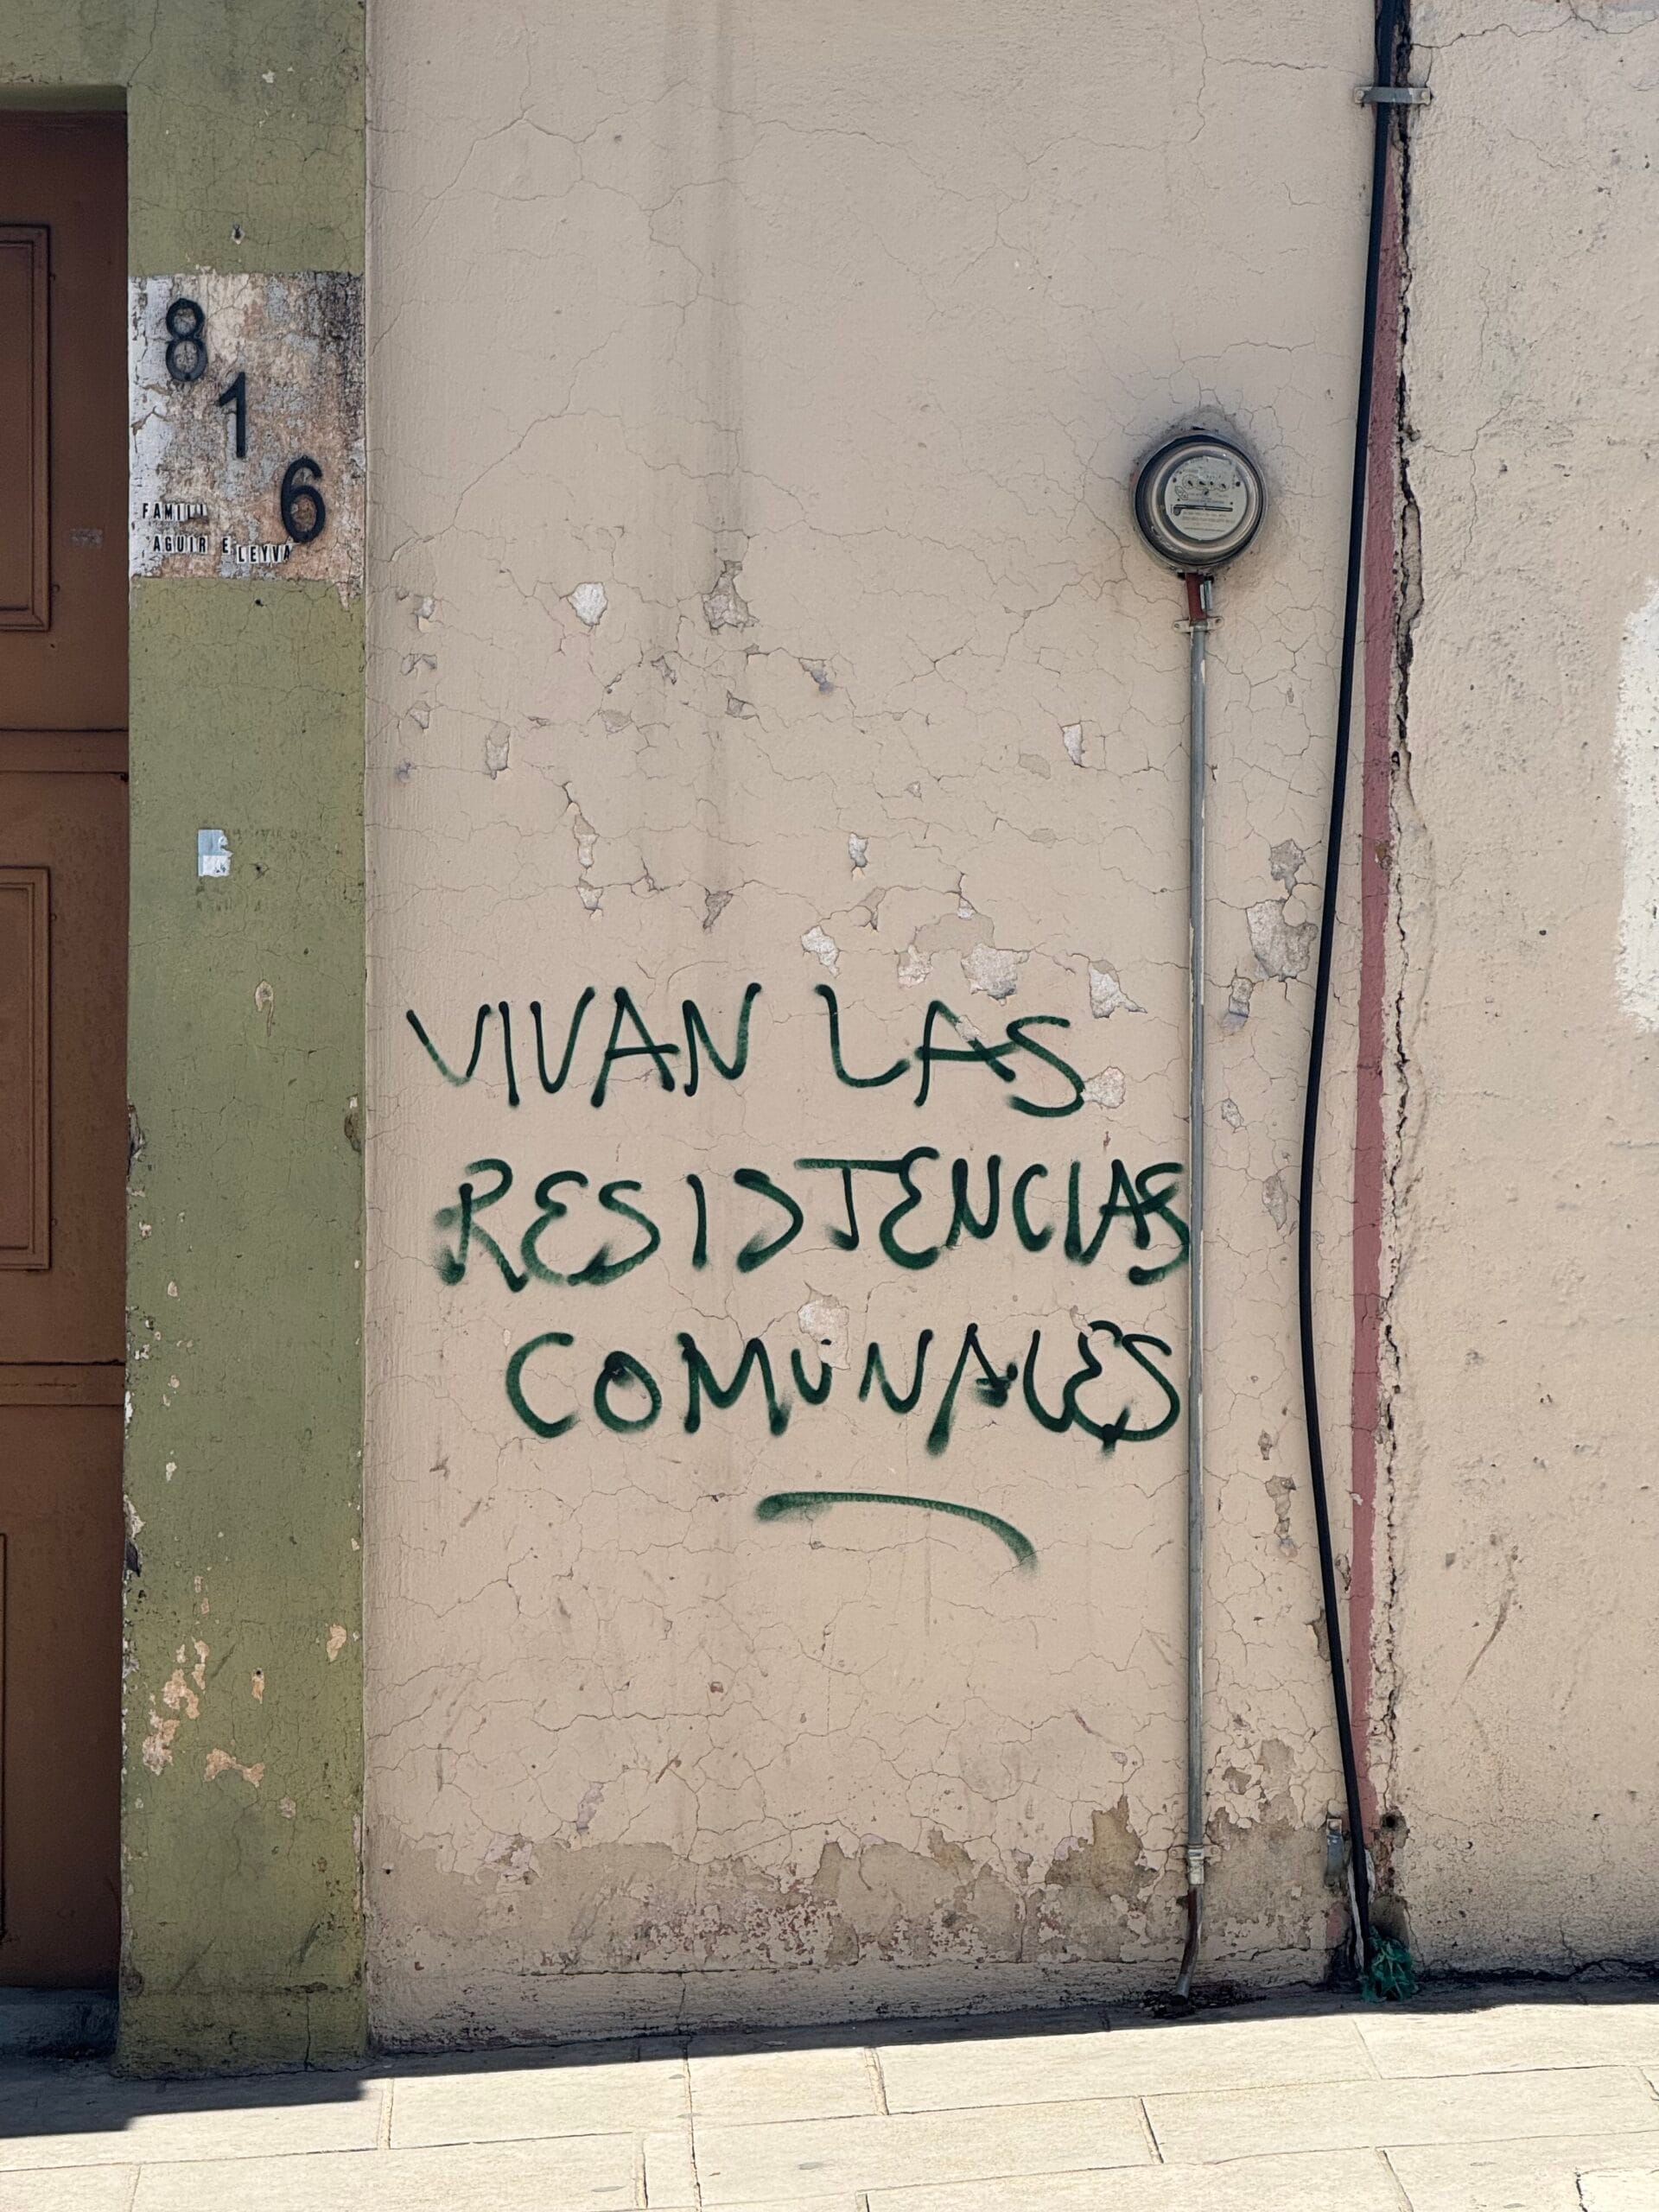 8
1
6
FAMILI
AGUIR E
LEYVA
VIVAN LAS
RESISTENCIAS
COMUNALES